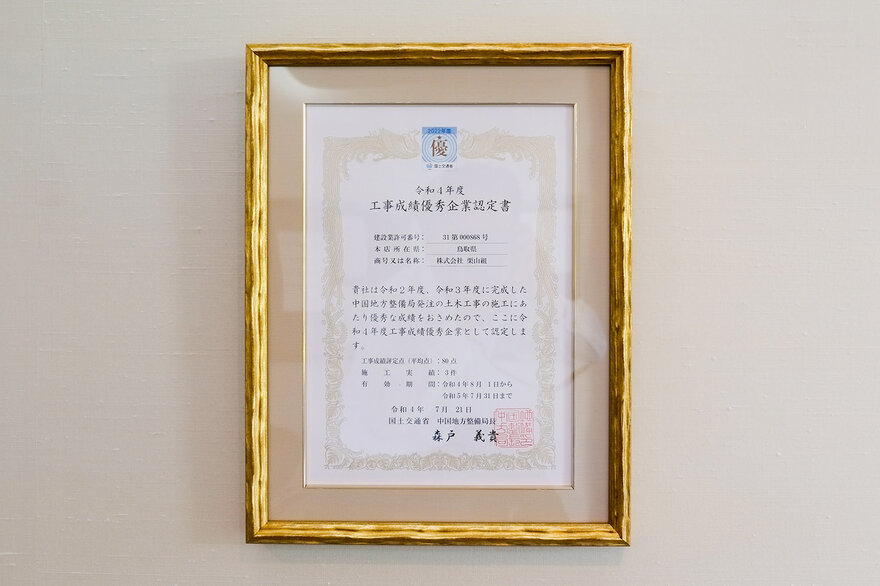 2022年度
優
国土交通省
令和4年度
工事成績優秀企業認定書
建設業許可番号： 31第000868号
本店所在県： 鳥取県
商号又は名称： 株式会社 栗山組
貴社は令和２年度、令和３年度に完成した
中国地方整備局発注の土木工事の施工にあ
たり優秀な成績をおさめたので、ここに令
和４年度工事成績優秀企業として認定しま
す。
工事成績評定点（平均点）：80点
施工実績：3件
有効期間：令和4年8月 1日から
令和5年7月31日まで
令和4年 7月 21日
国土交通省 中国地方整備局長
森戸 義貴